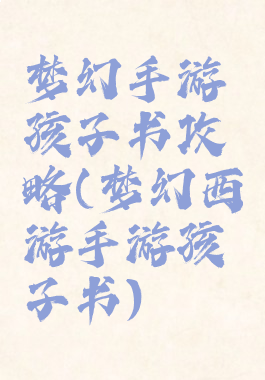 梦幻手游
孩子书攻
略(梦幻西
游手游孩
子书)